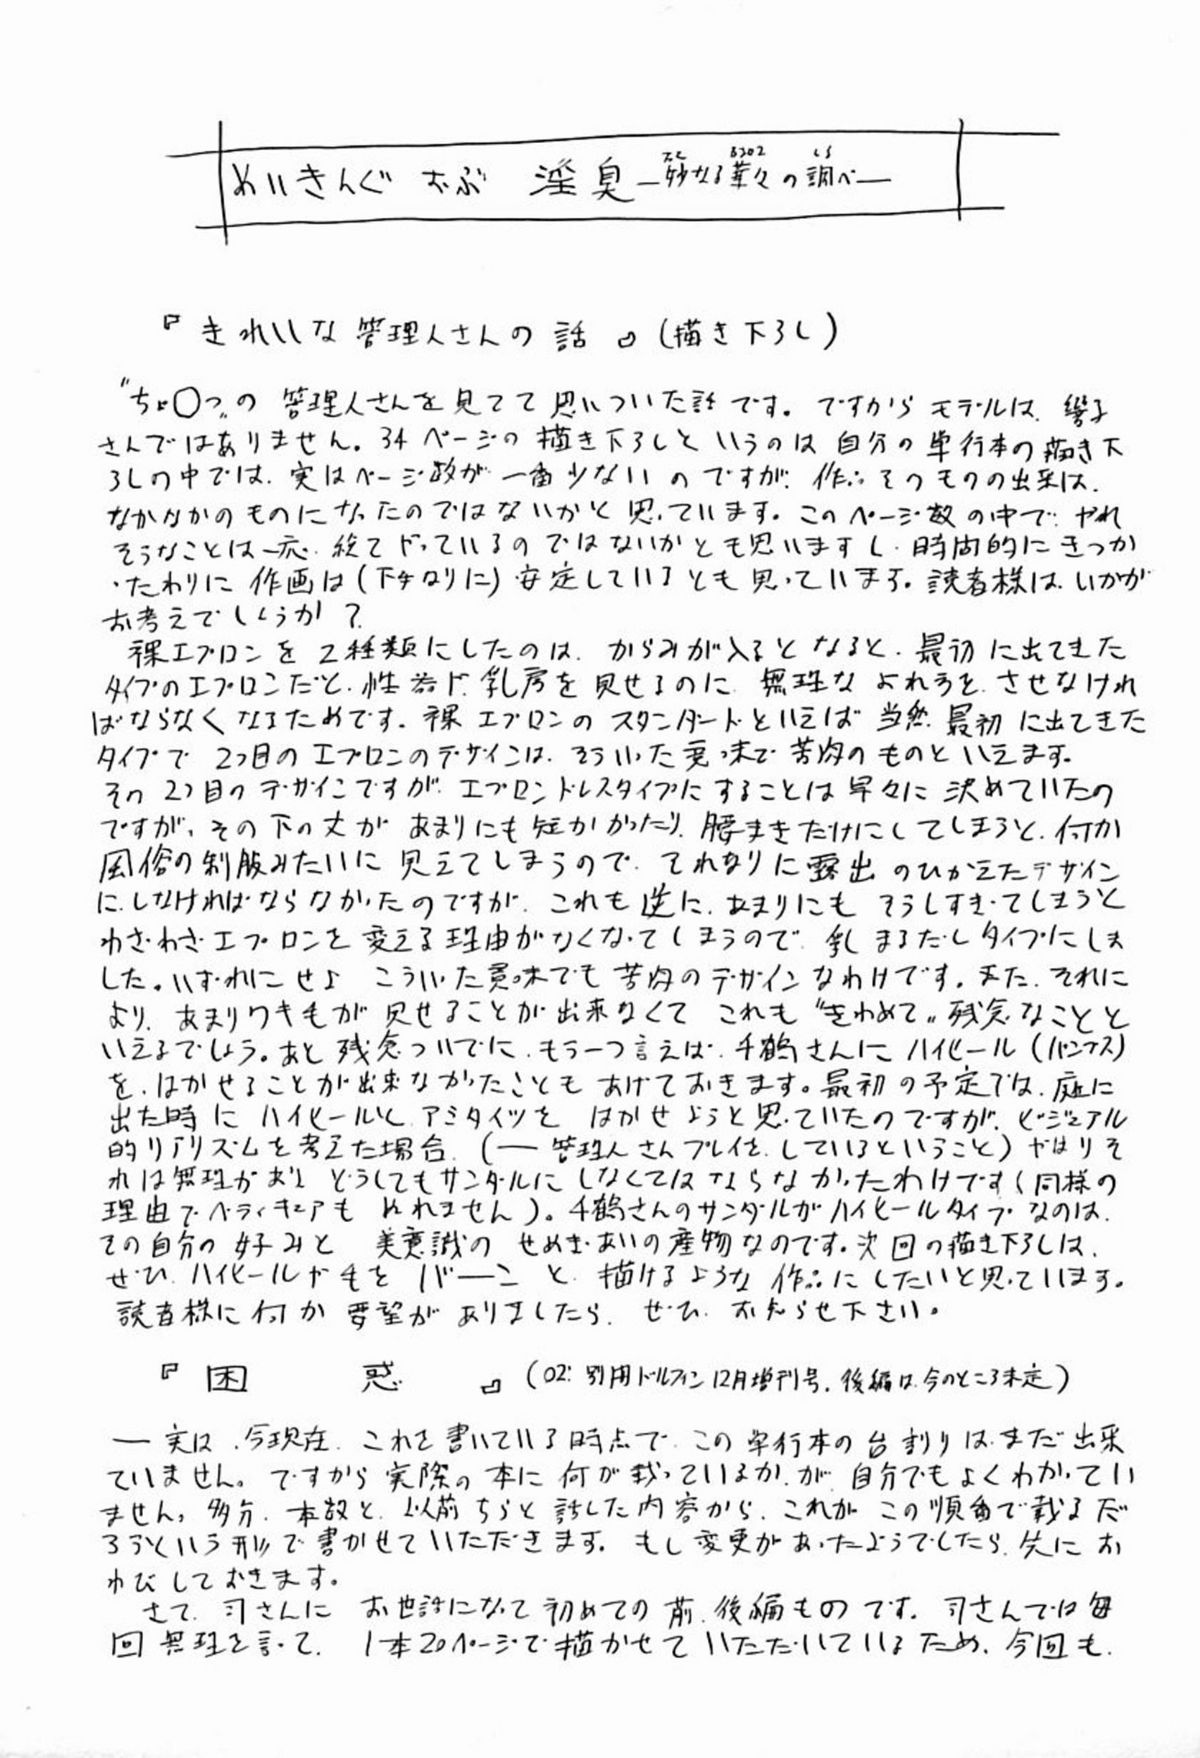 めいきんぐ おぶ 淫臭 ―妙なる華々の調べ―
『きれいな管理人さんの話』(描き下ろし)
"ちょ○っ"の管理人さんを見てて思いついた話です。ですからモデルは、響子
さんではありません。34ページの描き下ろしというのは自分の単行本の描き下
ろしの中では、実はページ数が一番少ないのですが、作品そのものの出来は、
なかなかのものになったのではないかと思っています。このページ数の中で、やれ
そうなことは一応、総てやっているのではないかとも思いますし、時間的にきつか
ったわりに作画は(下手なりに)安定しているとも思っています。読者様は、いかが
お考えでしょうか?
裸エプロンを2種類にしたのは、からみが入るとなると、最初に出てきた
タイプのエプロンだと、性器や、乳房を見せるのに、無理なよれ方を、させなけれ
ばならなくなるためです。裸エプロンのスタンダードといえば当然、最初に出てきた
タイプで2つ目のエプロンのデザインは、そういった意味で苦肉のものといえます。
その2つ目のデザインですが、エプロンドレスタイプにすることは早々に決めていたの
ですが、その下の丈があまりにも短かかったり、腰まきだけにしてしまうと、何か
風俗の制服みたいに見えてしまうので、それなりに露出のひかえたデザイン
に、しなければならなかったのですが、これも逆に、あまりにもそうしすぎてしまうと
わざわざエプロンを変える理由がなくなってしまうので、乳まるだしタイプにしま
した。いずれにせよ こういった意味でも苦肉のデザインなわけです。また、それに
より、あまりワキ毛が見せることが出来なくて これも"きわめて"残念なことと
いえるでしょう。あと残念ついでに、もう一つ言えば、千鶴さんにハイヒール(パンプス)
を、はかせることが出来なかったこともあげておきます。最初の予定では、庭に
出た時にハイヒールと、アミタイツをはかせようと思っていたのですが、ビジュアル
的リアリズムを考えた場合、(―管理人さんプレイを、しているということ)やはりそ
れは無理があり どうしてもサンダルにしなくてはならなかったわけです(同様の
理由でペディキュアもぬれません)。千鶴さんのサンダルがハイヒールタイプなのは、
その自分の好みと 美意識のせめぎあいの産物なのです。次回の描き下ろしは、
ぜひ、ハイヒールや毛をバーンと、描けるような作品にしたいと思っています。
読者様に何か要望がありましたら、ぜひ、お知らせ下さい。
『困 惑』(02'別冊ドルフィン12月増刊号、後編は今のところ未定)
―実は、今現在、これを書いている時点で、この単行本の台割りは、まだ出来
ていません。ですから実際の本に何が載っているか、が、自分でもよくわかってい
ません。多分、本数と、以前ちらと話した内容から、これがこの順番で載るだ
ろうという形で書かせていただきます。もし変更があったようでしたら、先にお
わびしておきます。
さて、司さんに お世話になって初めての前、後編ものです。司さんでは毎
回無理を言って、1本20ページで描かせていただいているため、今回も、